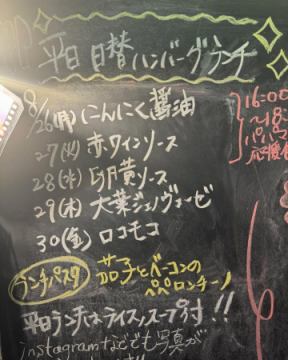 平日 日替ハンバーグランチ
8/26(月)にんにく醤油
27(火)赤ワインソース
28(水)卵黄ソース
29(木)大葉ジェノヴェーゼ
30(金)ロコモコ
ランチパスタ 茄子とベーコンのペペロンチーノ
平日ランチはライス,スープ付!!
instagramなどでも写真が
16:00
~18:
パパマ
応援